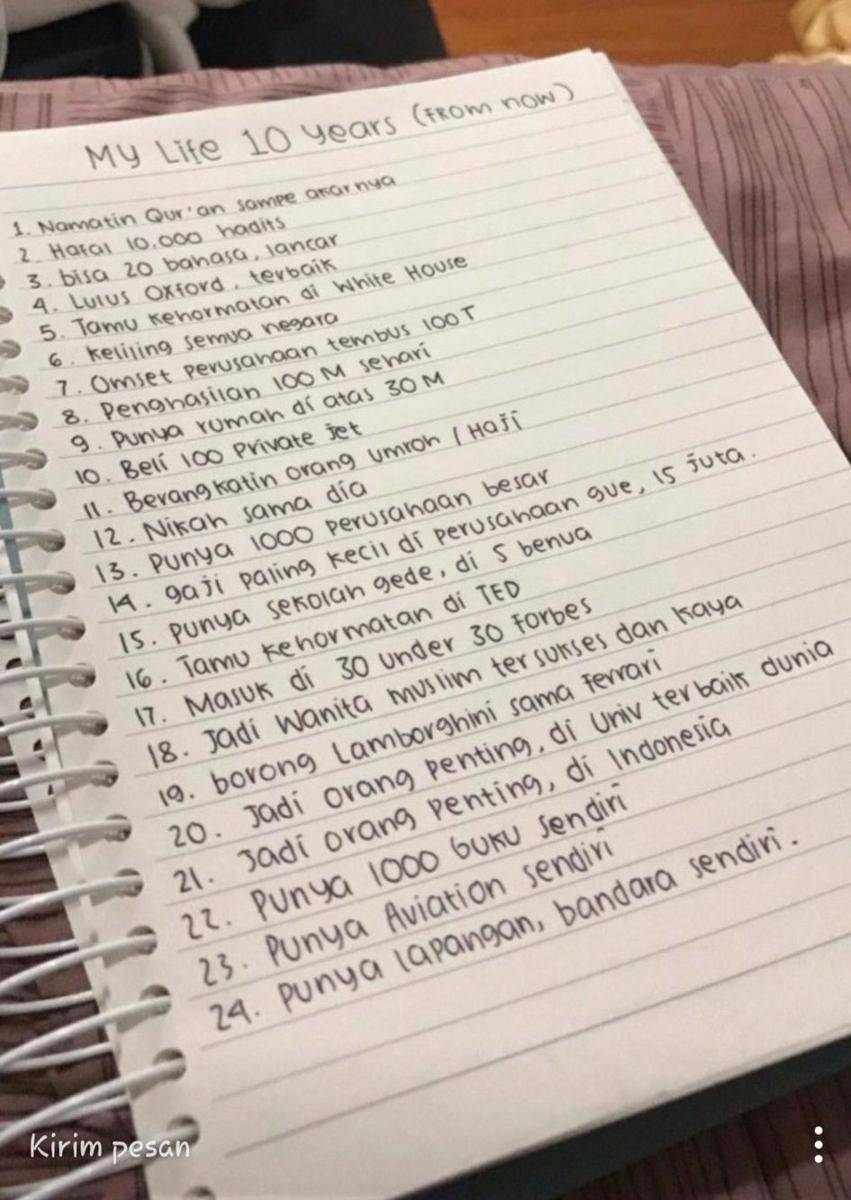 My Life 10 years (From now)
1. Namatin Qur'an sampe akarnya
2. Hafal 10.000 hadits
3. bisa 20 bahasa, lancar
4. Lulus Oxford, terbaik
5. Tamu kehormatan di White House
6. keliling semua negara
7. Omset perusahaan tembus 100 T
8. Penghasilan 100 M sehari
9. Punya rumah di atas 30 M
10. Beli 100 Private jet
11. Berangkatin orang umroh / Haji
12. Nikah sama dia
13. Punya 1000 perusahaan besar
14. gaji paling kecil di perusahaan gue, 15 juta.
15. Punya sekolah gede, di 5 benua
16. Tamu kehormatan di TED
17. Masuk di 30 under 30 Forbes
18. Jadi Wanita muslim tersukses dan kaya
19. borong Lamborghini sama Ferrari
20. Jadi orang penting, di Univ terbaik dunia
21. Jadi orang penting, di Indonesia
22. Punya 1000 buku sendiri
23. Punya Aviation sendiri
24. Punya lapangan, bandara sendiri.
Kirim pesan